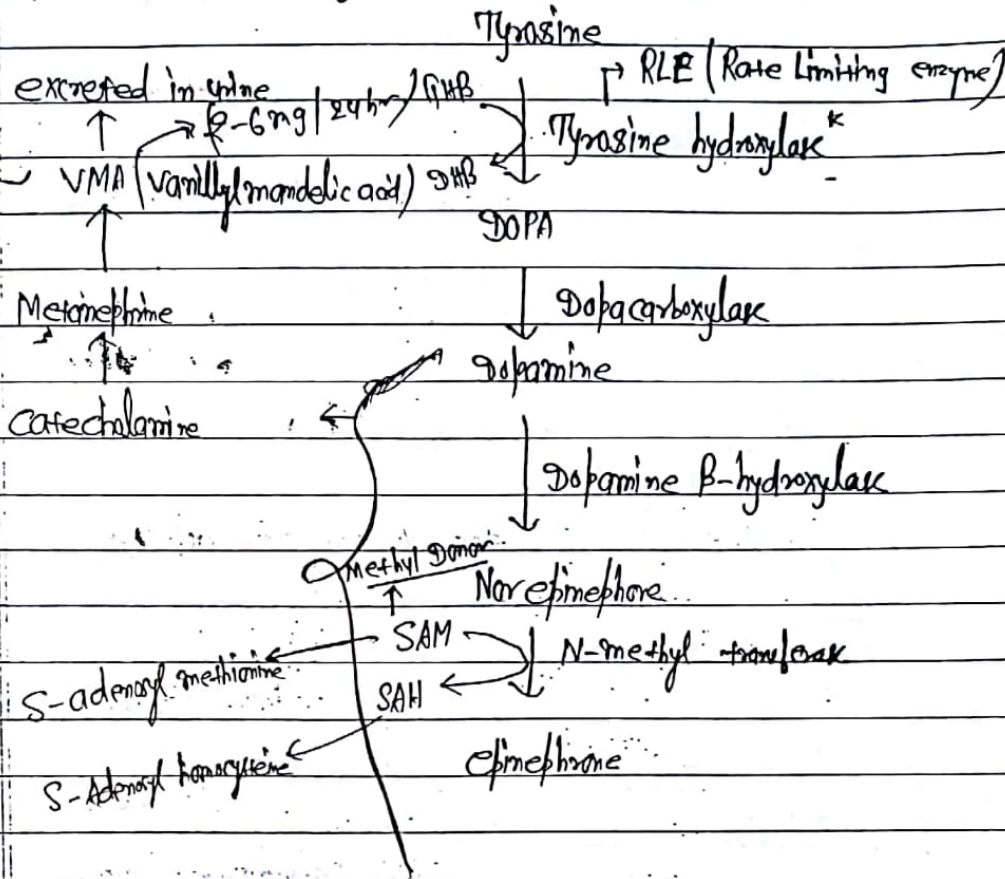 Tyrosine
RLE (Rate Limiting enzyme)
excreted in urine
2-6mg/24hr) THB
Tyrosine hydroxylase*
VMA (Vanillylmandelic acid) DHB
DOPA
Metanephrine
Dopacarboxylase
Dopamine
Catecholamine
Dopamine β-hydroxylase
Methyl Donor
Norepinephrine
SAM
N-methyl transferase
S-adenosyl methionine
SAH
S-Adenosyl homocysteine
epinephrine